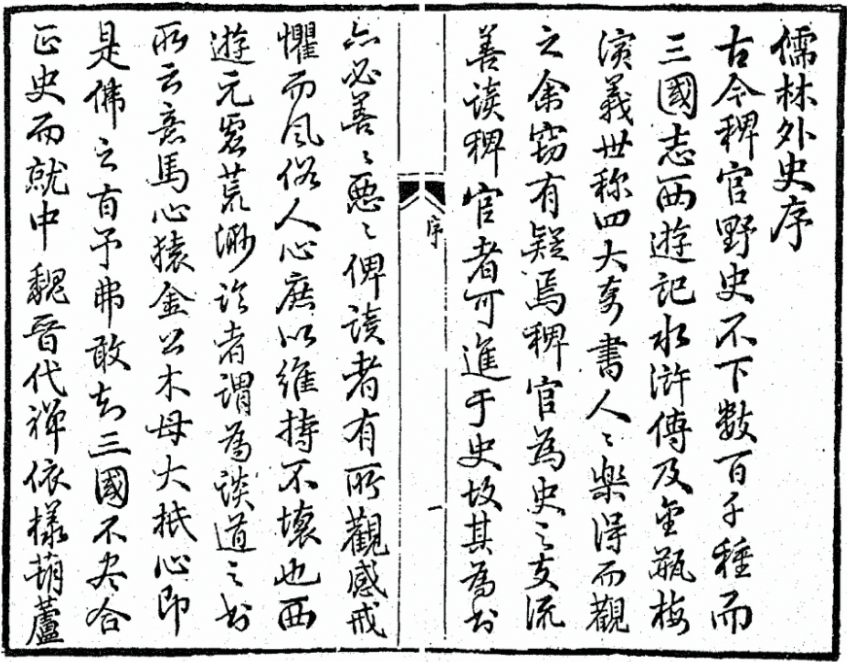 儒林外史序
古今稗官野史不下數百千種而
三國志西遊記水滸傳及金瓶梅
演義世称四大奇書人〻樂得而觀
之余竊有疑焉稗官為史之支流
善读稗官者可進于史故其為书
序
一
亦必善〻惡〻俾讀者有所觀感戒
懼而風俗人心庶以維持不壞也西
遊元虛荒渺论者謂為談道之书
所云意馬心猿金公木母大抵心即
是佛之旨予弗敢知三國不尽合
正史而就中魏晉代禪依樣葫蘆